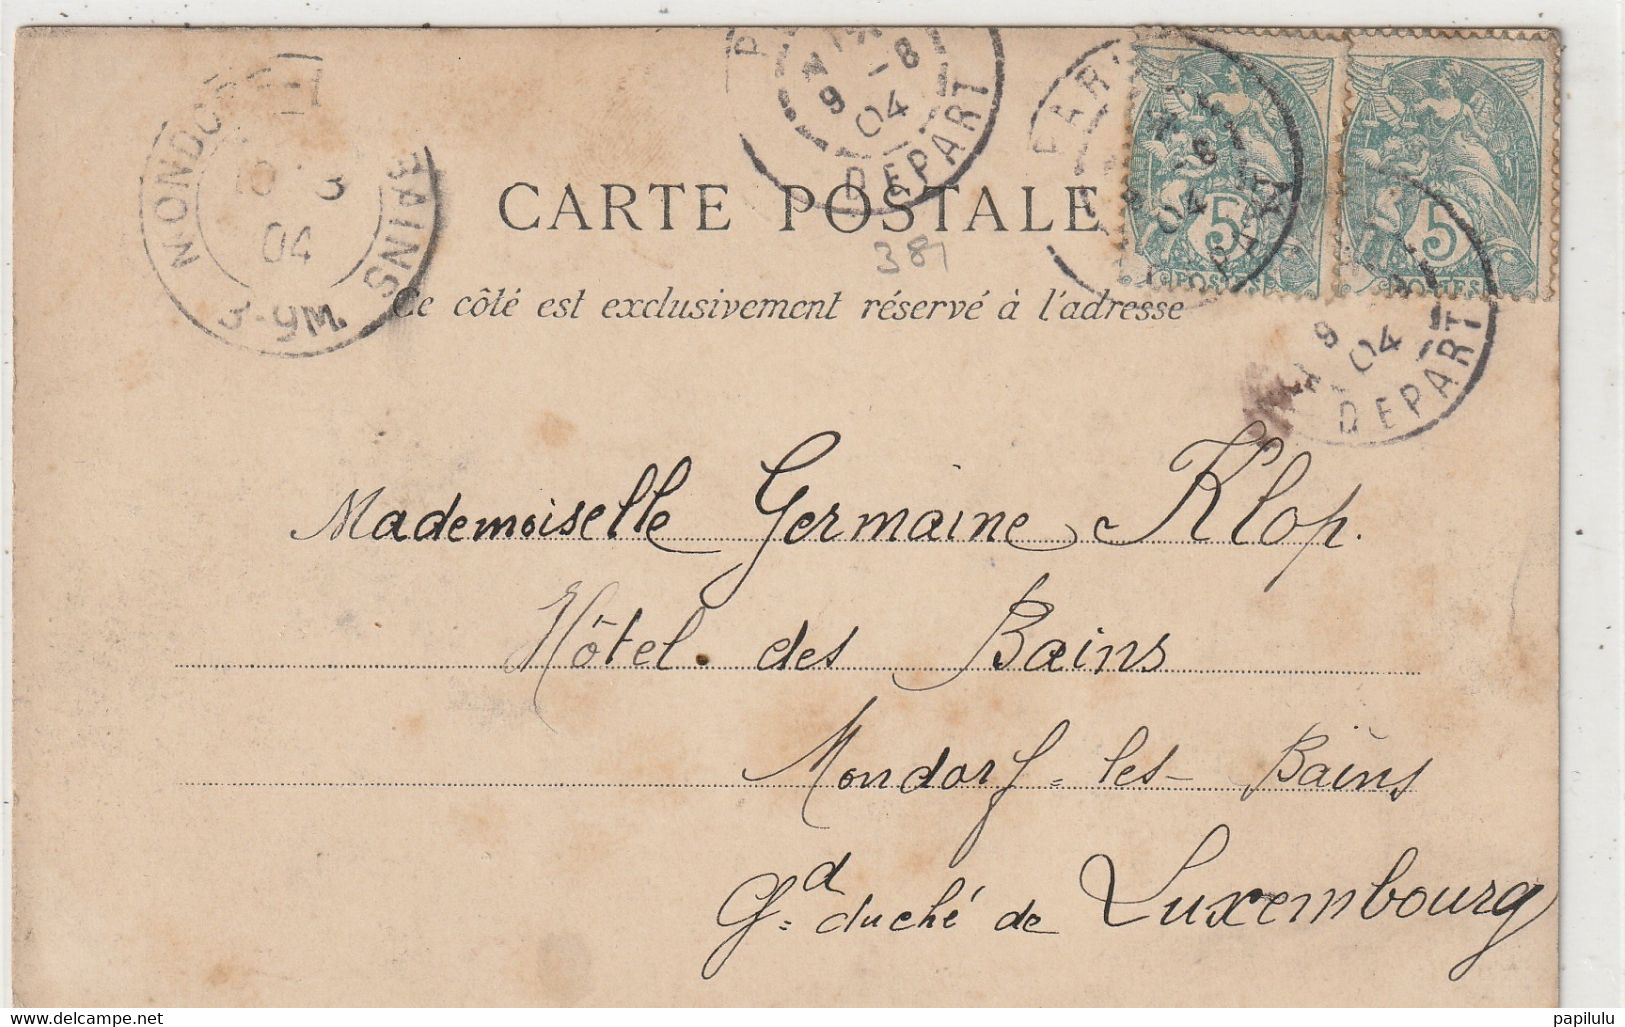 CARTE POSTALE
389
Ce côté est exclusivement réservé à l'adresse
Mademoiselle Germaine Klop.
Hôtel des Bains
Mondorf=les-Bains
Gd duché de Luxembourg
BAINS
10 8
04
3-9M.
9 -8
04
DEPART
PARIS
04
5
POSTES
5
POSTES
9
04
DEPART
www.delcampe.net
papilulu